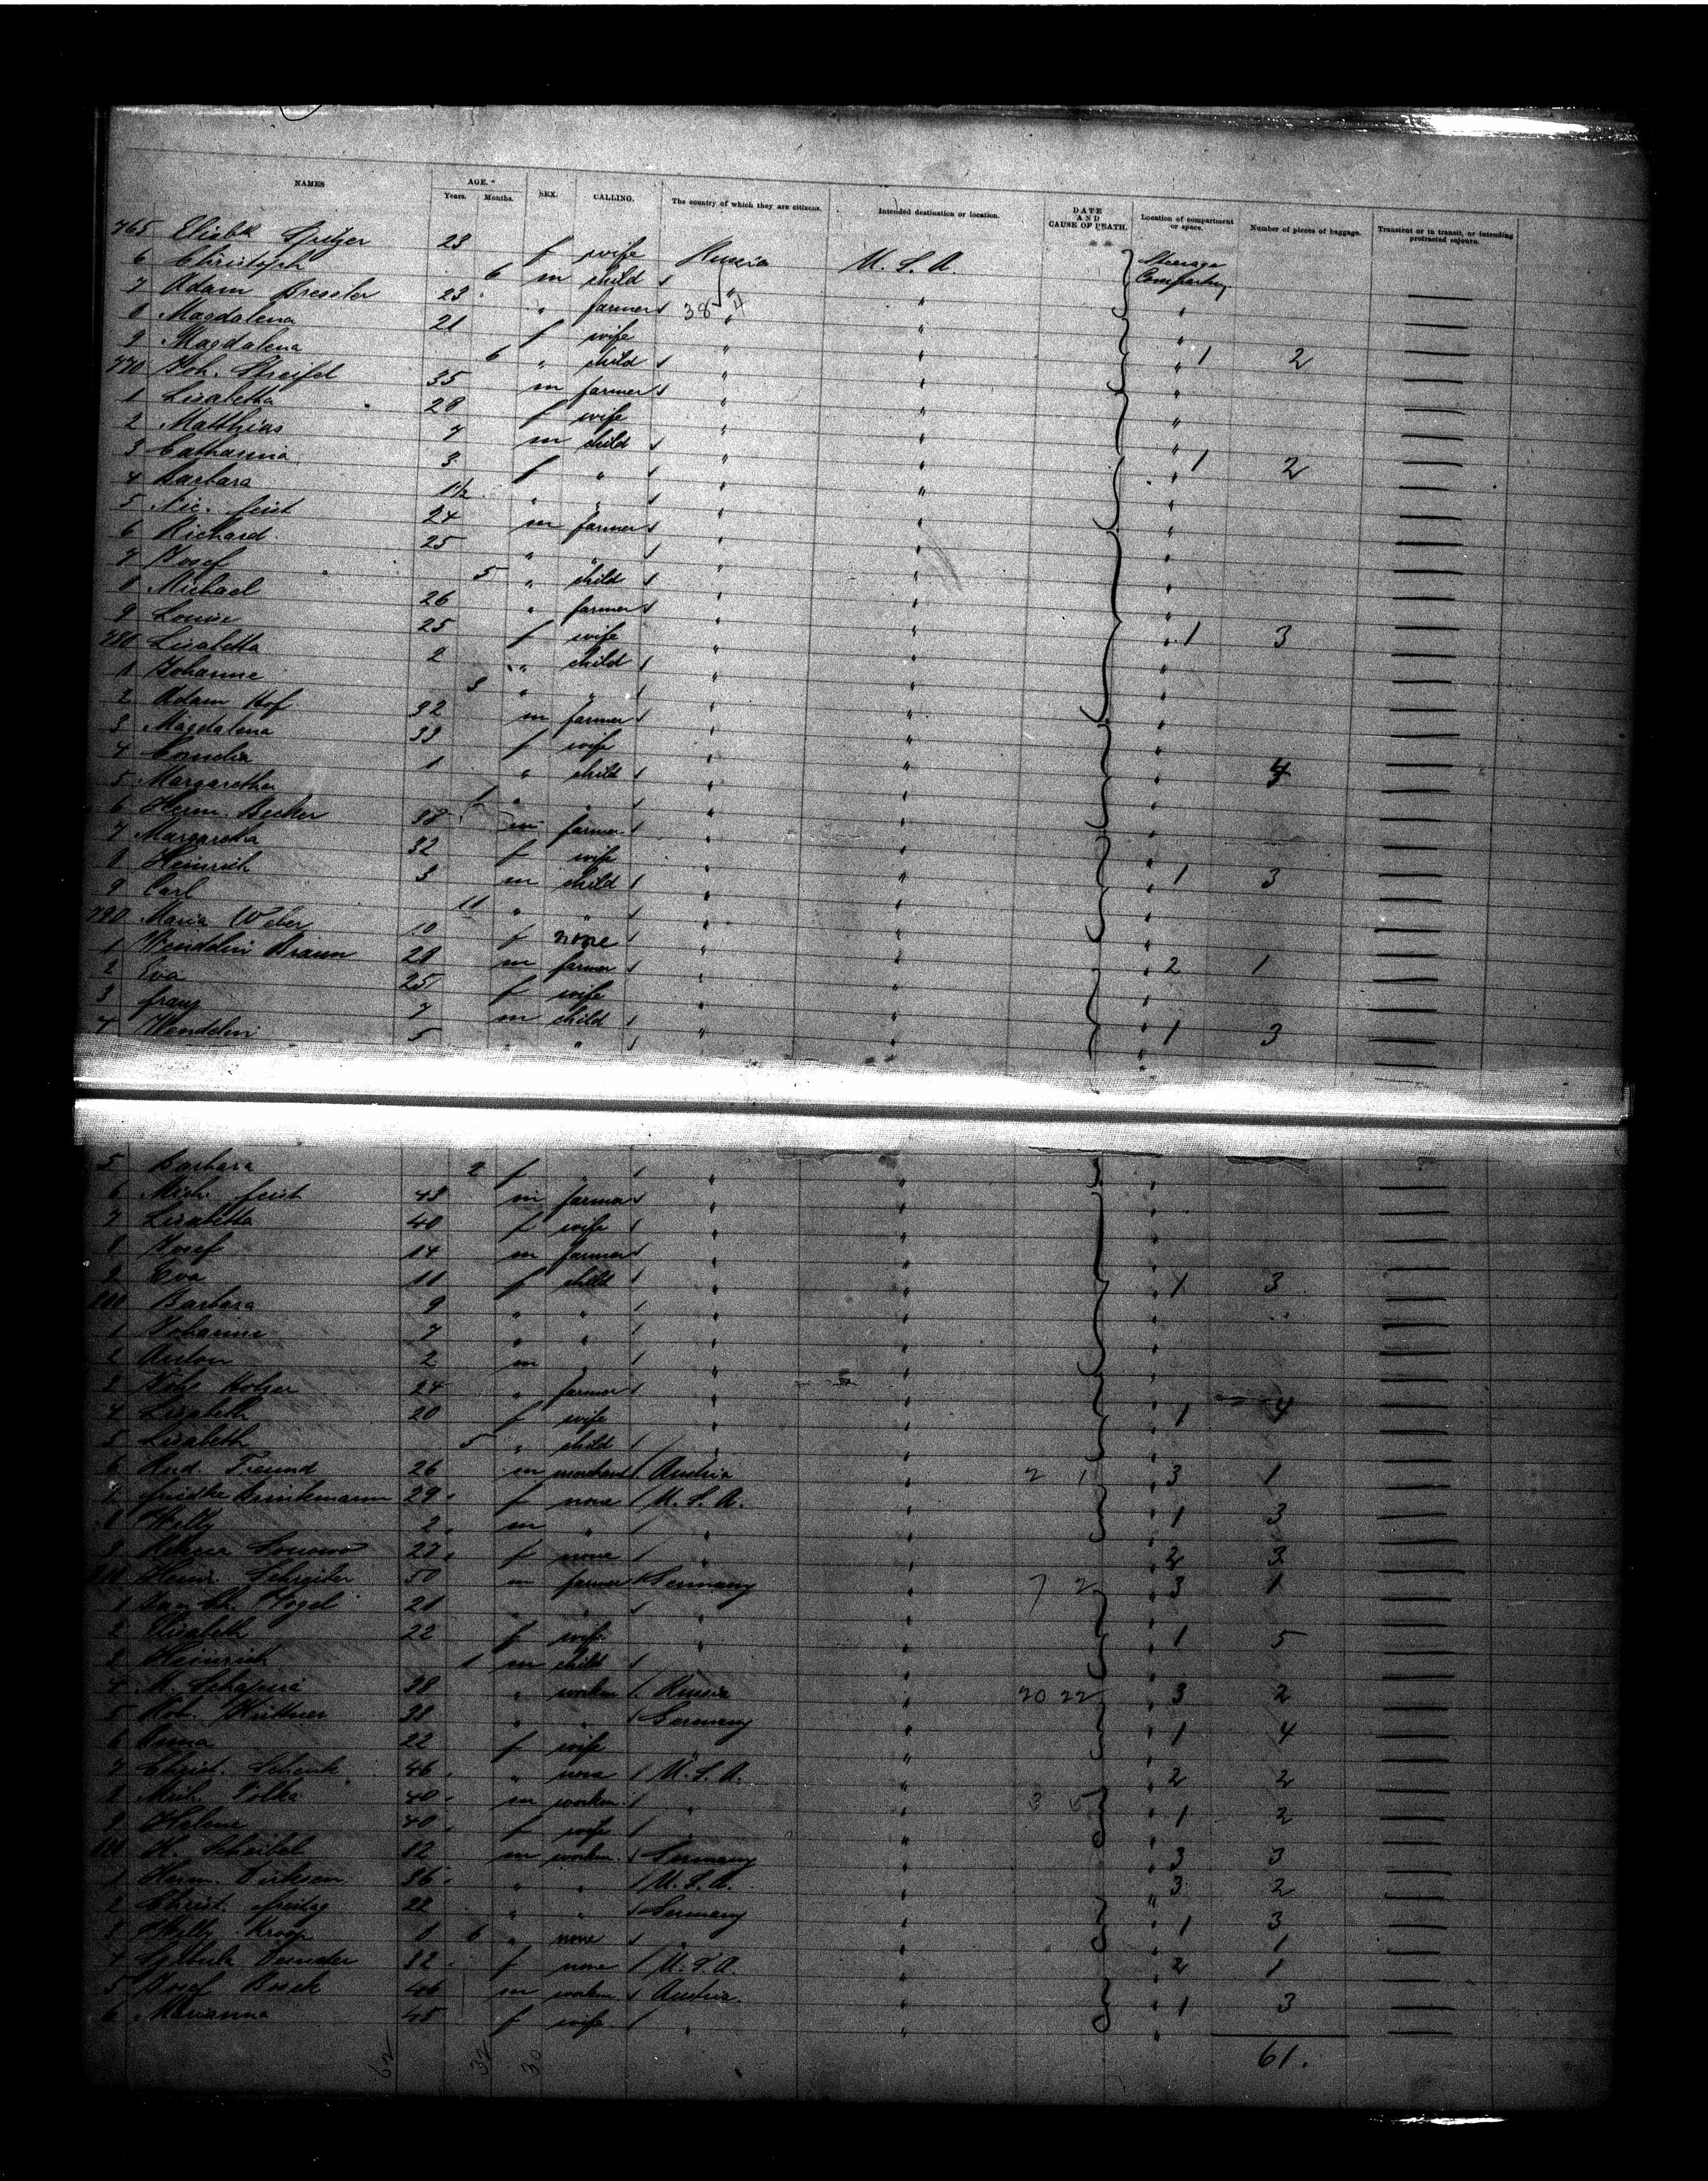 NAMES AGE. Years. Months. SEX. CALLING. The country of which they are citizens. Intended destination or location. DATE AND CAUSE OF DEATH. Location of compartment or space. Number of pieces of baggage. Transient or in transit, or intending protracted sojourn.
465 Elisabth Spitzer 23 f wife Russia U. S. A. Steerage
6 Christoph 6 m child " "
7 Adam Bressler 23 " farmer 38 4 " "
8 Magdalena 21 f wife " "
9 Magdalena 6 " child " " 1 2
770 Joh. Streifel 35 m farmer " "
1 Lisabetha 28 f wife " "
2 Matthias 7 m child " "
3 Catharina 3 f " " " 1 2
4 Barbara 1 1/2 " " " "
5 Nic. Feist 24 m farmer " "
6 Richard 25 " " " "
7 Josef 5 " child " "
8 Michael 26 " farmer " "
9 Louise 25 f wife " " 1 3
780 Lisabetha 2 " child " "
1 Johanne 3 " " " "
2 Adam Hof 32 m farmer " "
3 Magdalena 33 f wife " "
4 Cornelia 1 " child " " 4
5 Margaretha 1 " " " "
6 Herm. Becker 38 m farmer " "
7 Margaretha 32 f wife " "
8 Heinrich 3 m child " " 1 3
9 Carl 11 " " " "
790 Maria Weber 10 f none " "
1 Wendelin Braun 28 m farmer " " 2 1
2 Eva 25 f wife " "
3 Franz 7 m child " "
4 Wendelin 5 " " " 1 3
5 Barbara 2 f " " "
6 Mich. Feist 43 m farmer " "
7 Lisabetha 40 f wife " "
8 Josef 14 m farmer " "
9 Eva 11 f child " " 1 3
800 Barbara 9 " " " "
1 Johanne 7 " " " "
2 Anton 2 m " " "
3 Johs Holzer 24 " farmer " "
4 Lisabeth 20 f wife " " 1 4
5 Lisabeth 5 " child " "
6 Rud. Freund 26 m merchant Austria " 2 1 3 1
7 Friedke Brinkmann 29 f none U. S. A. "
8 Willy 2 m " " " 1 3
9 27 f none " " 2 3
810 Heinr. Schreiber 50 m farmer Germany " 7 2 3 1
1 Vogel 21 " " " "
2 Elisabeth 22 f wife " " 1 5
3 Heinrich 1 m child " "
4 M. Schapira 38 " workm. Russia " 20 22 3 2
5 Rob. Hüttner 38 " " Germany "
6 Anna 22 f wife " " 1 4
7 Christ. Schenk 46 " none U. S. A. " 2 2
8 Mich. Polka 40 m workm. " " 3 5
9 Helene 40 f wife " " 1 2
H. Scheibel 32 m workm. Germany " 3 3
1 Herm. Dirksen 36 " " U. S. A. " 3 2
2 Christ. Freitag 22 " " Germany " 1 3
3 Willy Kroop 8 6 " none " " 1
4 32 f none U. S. A. " 2 1
5 Josef 46 m workm. Austria. " 1 3
6 Marianna 45 f wife " "
62 32 30 61.